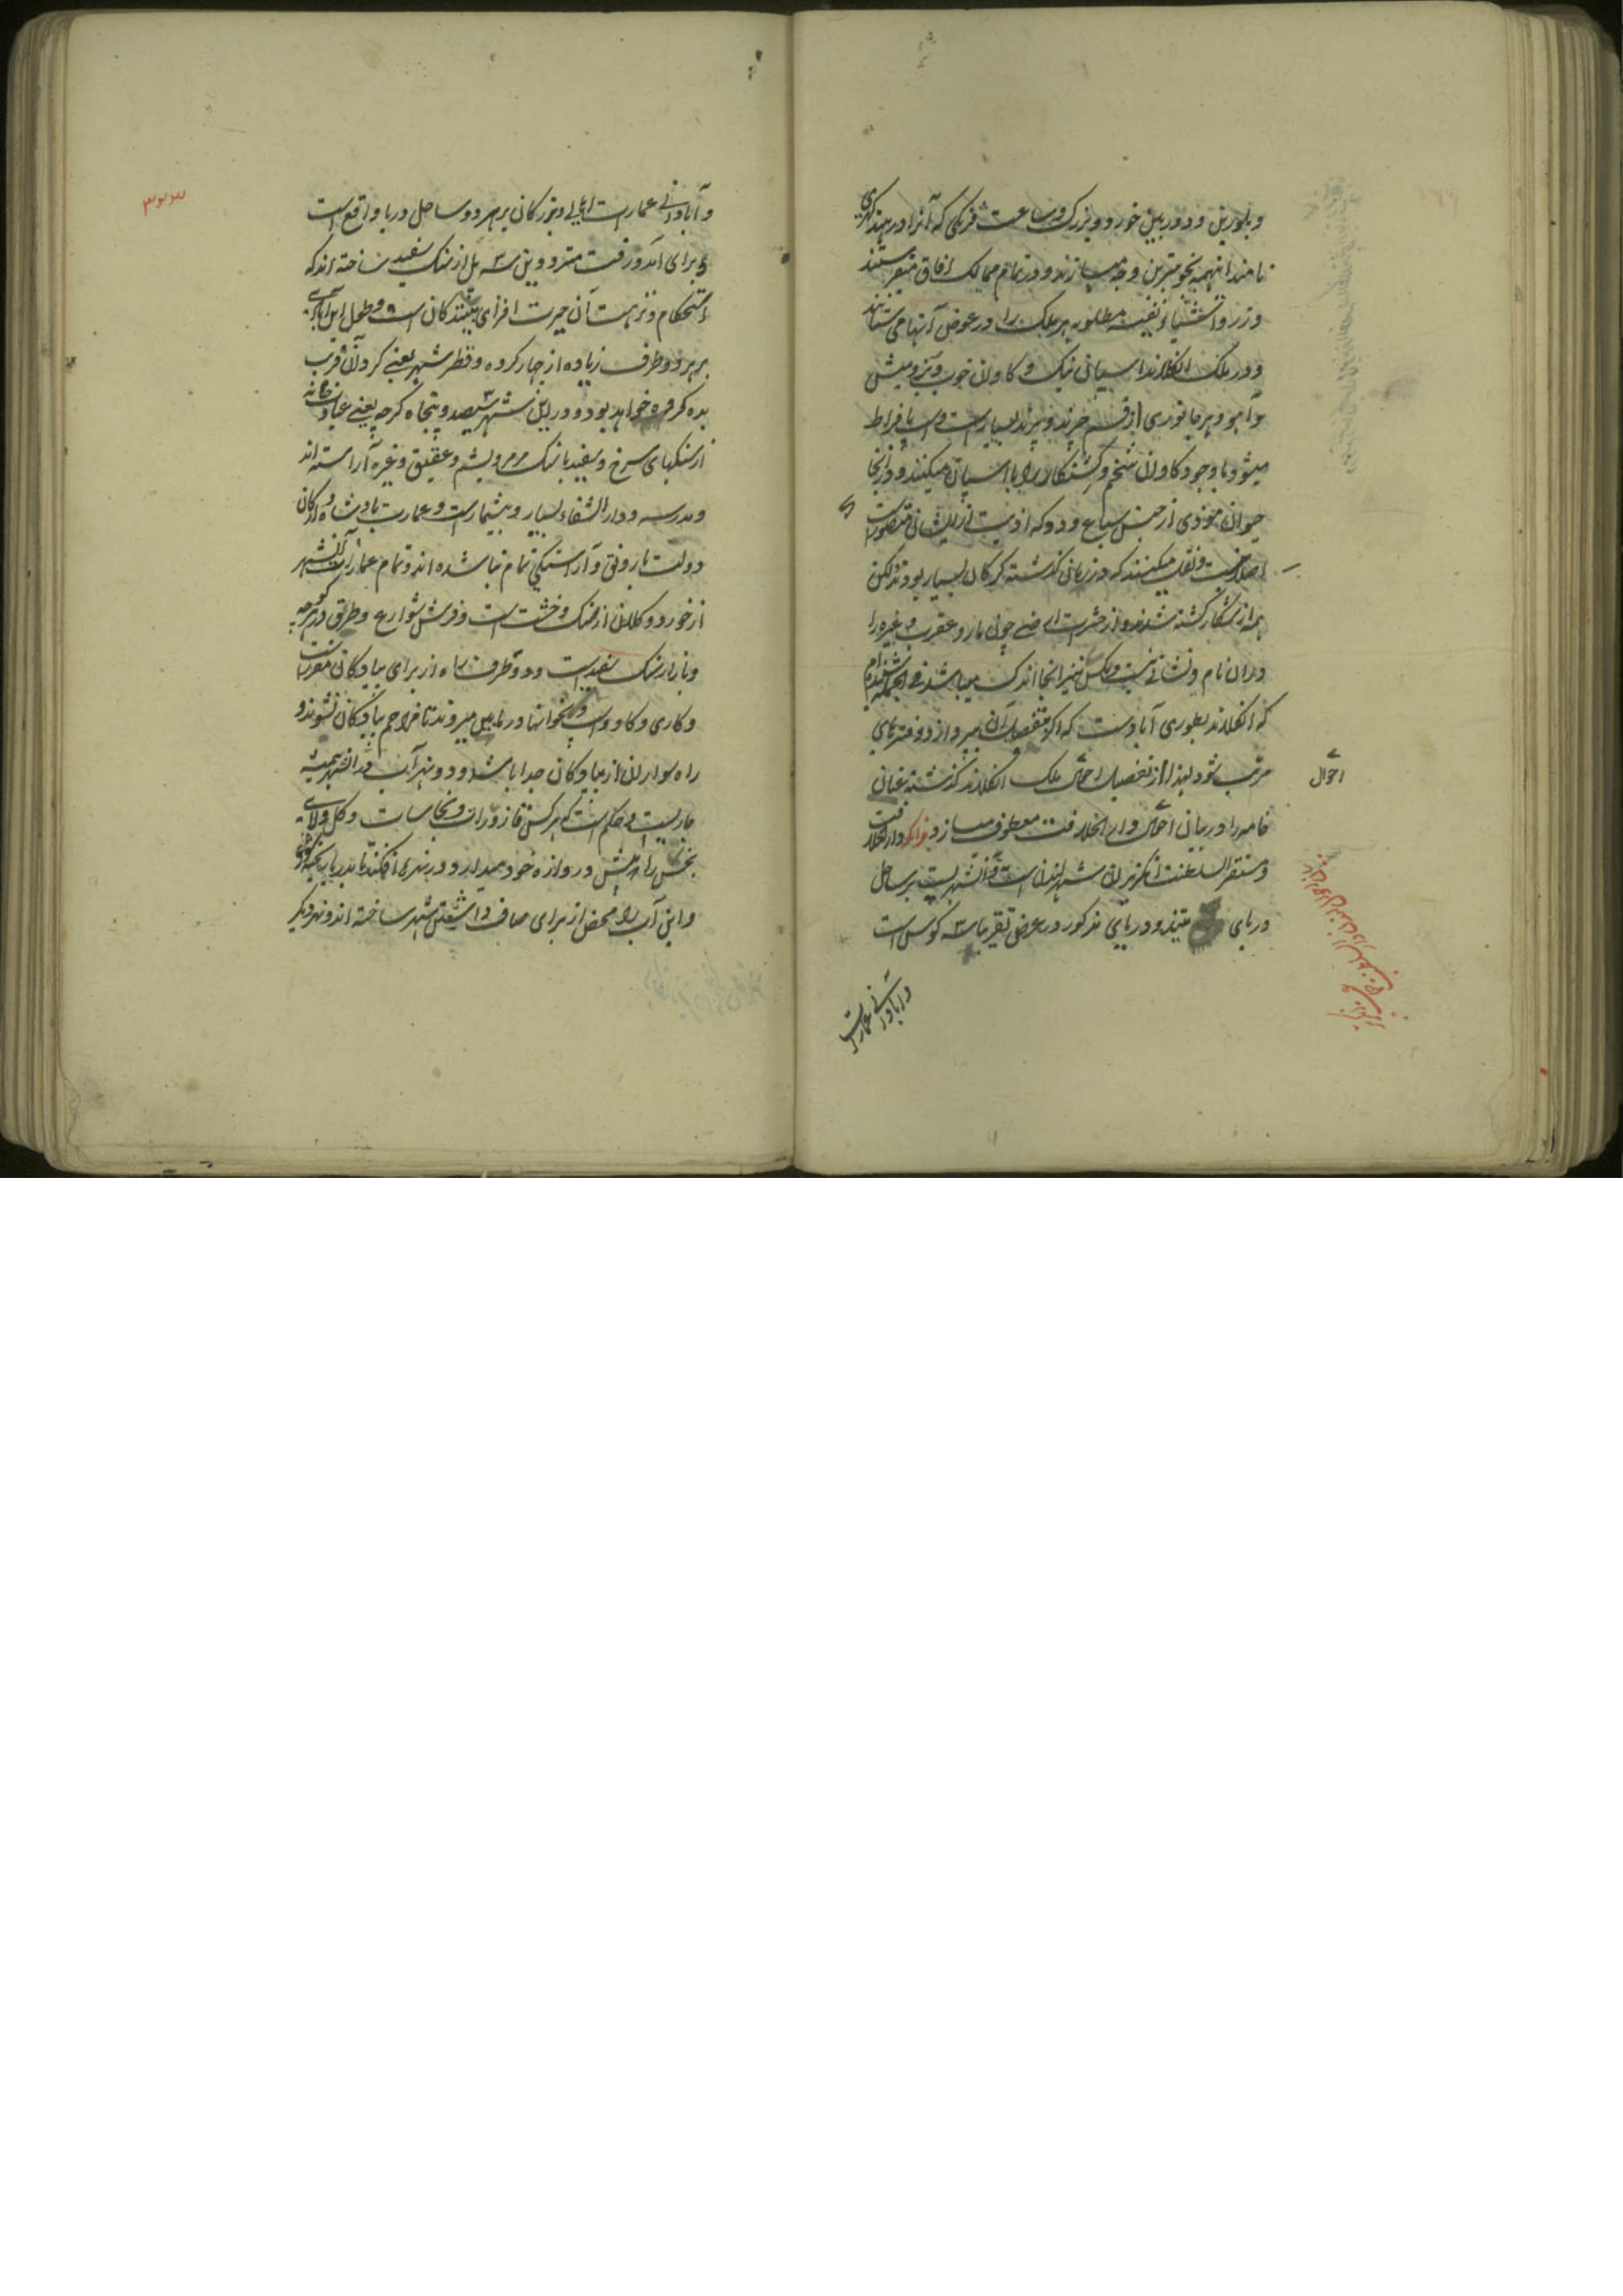 و بلورین و دوربین خورد و بزرگ و ساعت فرنگی که آنرا در هند کهری
نامند اینهمه بخوبترین وجه میسازند و در تمام ممالک افاق میفرستند
و زر و اشیاء نفیسه مطلوبه هر ملک را در عوض آنها می ستانند
و در ملک انگلاند اسپانی نیک و کاوان خوب و بز و میش
و آهو و هر جانوری از قسم چرند و پرند بسیارست و باافراط
میشود با وجود کاوان ضخم کشتکار را با اسپان میکنند و در انجا
حیوان موذی از جنس سباع و دد که اذیت از ایشان متصورست
اصلا نیست و نقل میکنند که در زمانی گذشته گرگان بسیار بودند لکن
همه از شکار کشته شدند و از حشرات ارضی چون مار و عقرب و غیره را
دران نام و نشانی نیست و مگس نیز انجا اندک میباشد فی الجمله شنیده ام
که انگلاند بطوری آبادست که اگر بتفصیل آن پردازد دفترهای
مرتب شود لهذا از تفصیل احوال ملک انگلاند گذشته عنان
خامه را در بیان احوال دار الخلافت معطوف میسازد ذکر دار الخلافت
و مستقر السلطنت انگریزان شهر لندن است و آن شهریست بر ساحل
دریای متیند و دریای مذکور در عرض تقریبا سه کوس است
احوال
و آبادانی عمارت
و آبادانی عمارت اعالی و بزرگان بر هر دو ساحل دریا واقع است
و برای آمد و رفت مترددین سه پل از سنگ سفید ساخته اند که
استحکام و نزهت آن حیرت افزای بینندگان است و طول این آبادی
بر هر دو طرف زیاده از چهار کروه و قطر شهر یعنی گرد آن قریب
بده کروه خواهد بود و درین شهر سیصد و پنجاه گرجه یعنی عبادتخانه
از سنگهای سرخ و سفید با سنگ مرمر و یشم و عقیق و غیره آراسته اند
و مدرسه و دار الشفاء بسیار و بیشمارست و عمارت بادشاه و ارکان
دولت با رونق و آراستگی تمام بنا شده اند و تمام عمارات آنشهر
از خورد و کلان از سنگ و خشت است و فرش شوارع و طرق و هر کوچه
و بازار سنگ سفیدست و دو طرف راه از برای پیادگان مقررست
و گاری و گاو و اسپ و انها در مابین میروند تا مزاحم پیادگان نشوند و
راه سواران از پیادگان جدا باشد و دو نهر آب در آنشهر همیشه
جاریست و حکم است که هر کس قاذورات و نجاسات و گل و لای
نجس را از پیش دروازه خود در نهر افکند تا بدریا
و این آب را محض از برای صاف داشتن شهر ساخته اند و نهر دیگر
۳۲۳